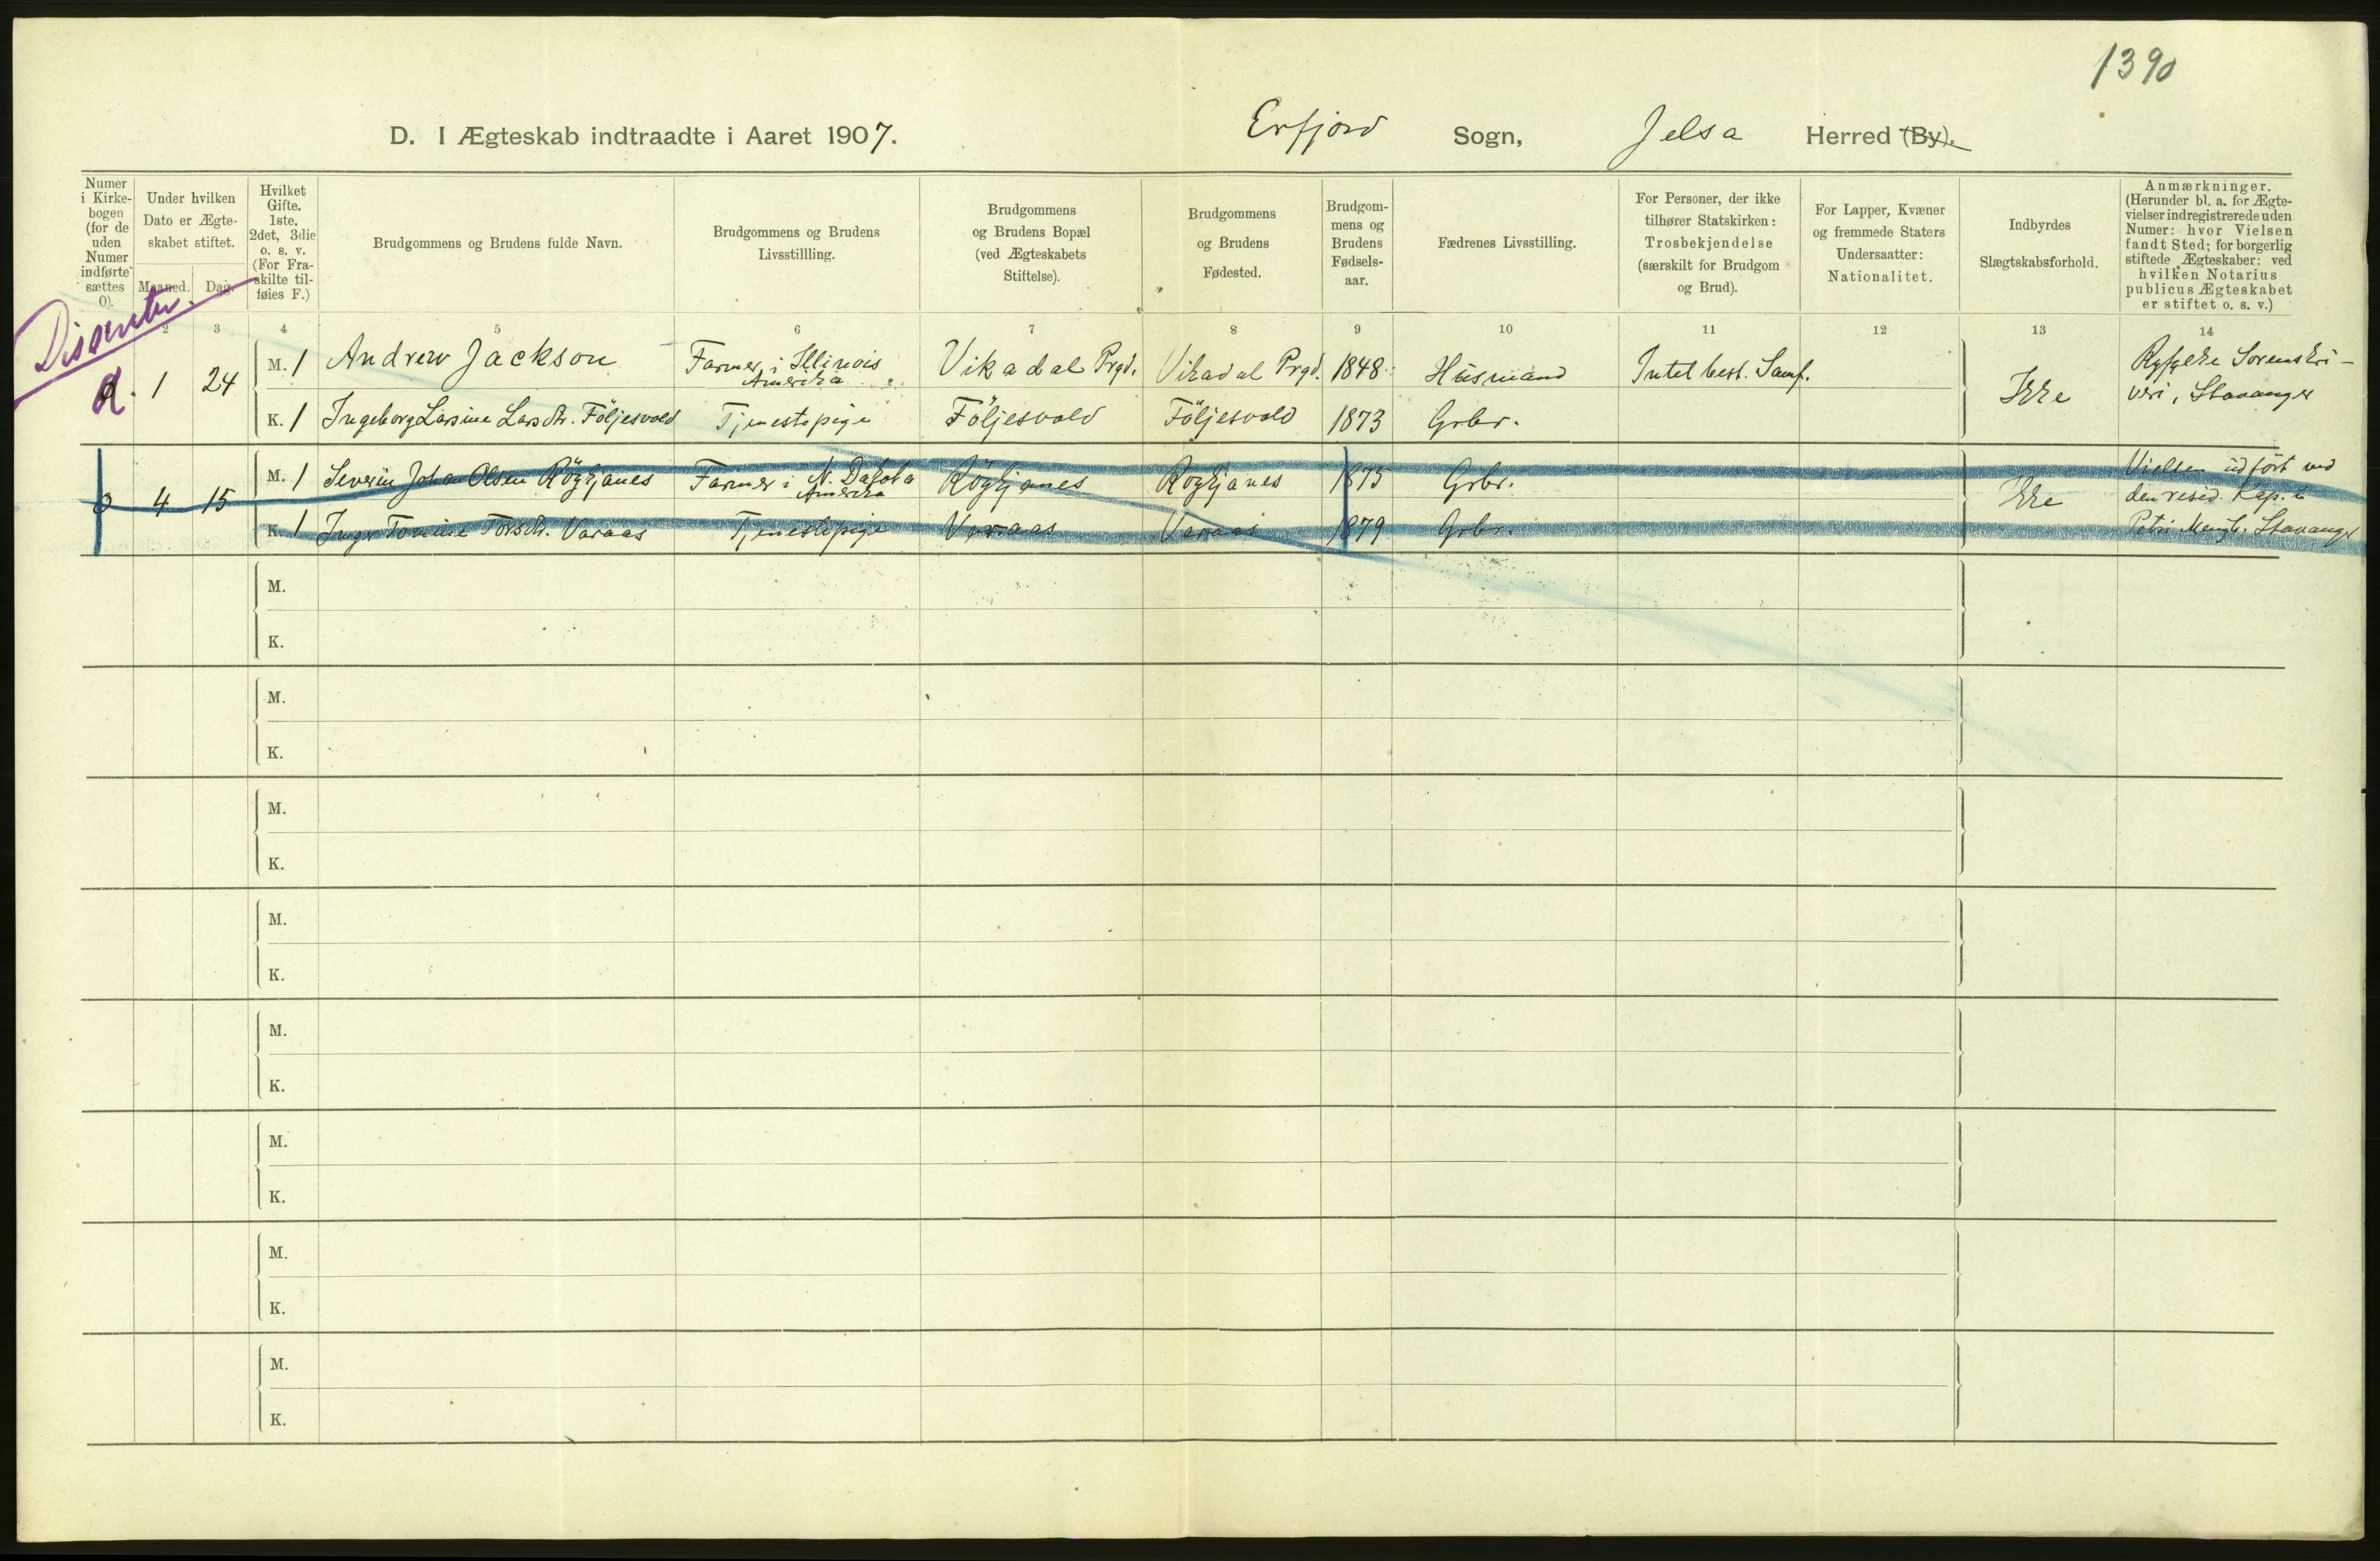 1390
D. I Ægteskab indtraadte i Aaret 1907. Erfjord Sogn, Jelsa Herred (By).
Numer
i Kirke-
bogen
(for de
uden
Numer
indførte
sættes
0).
Under hvilken
Dato er Ægte-
skabet stiftet.
Maaned. Dag.
Hvilket
Gifte.
1ste,
2det, 3die
o. s. v.
(For Fra-
skilte til-
føies F.)
Brudgommens og Brudens fulde Navn.
Brudgommens og Brudens
Livsstillling.
Brudgommens
og Brudens Bopæl
(ved Ægteskabets
Stiftelse).
Brudgommens
og Brudens
Fødested.
Brudgom-
mens og
Brudens
Fødsels-
aar.
Fædrenes Livsstilling.
For Personer, der ikke
tilhører Statskirken:
Trosbekjendelse
(særskilt for Brudgom
og Brud).
For Lapper, Kvæner
og fremmede Staters
Undersaatter:
Nationalitet.
Indbyrdes
Slægtskabsforhold.
Anmærkninger.
(Herunder bl. a. for Ægte-
vielser indregistrerede uden
Numer: hvor Vielsen
fandt Sted; for borgerlig
stiftede Ægteskaber: ved
hvilken Notarius
publicus Ægteskabet
er stiftet o. s. v.)
Dissenter.
2 3 4 5 6 7 8 9 10 11 12 13 14
d. 1 24
M. 1 Andrew Jackson Farmer i Illinois Amerika Vikadal Prgd. Vikadal Prgd. 1848 Husmand Intet best. Samf.
K. 1 Ingeborg Larsine Larsdtr. Följesvold Tjenestepige Följesvold Följesvold 1873 Grbr.
Ikke
Ryfylke Sorenskri-
veri, Stavanger
0 4 15
M. 1 Severin Johan Olsen Rögkjanes Farmer i N. Dakota Amerika Rögkjanes Rögkjanes 1875 Grbr.
K. 1 Inger Tomine Torsdtr. Varaas Tjenestepige Varaas Varaas 1879 Grbr.
Ikke
Vielsen udført ved
den resid. Kap. i
Petri Mengh. Stavanger
M.
K.
M.
K.
M.
K.
M.
K.
M.
K.
M.
K.
M.
K.
M.
K.